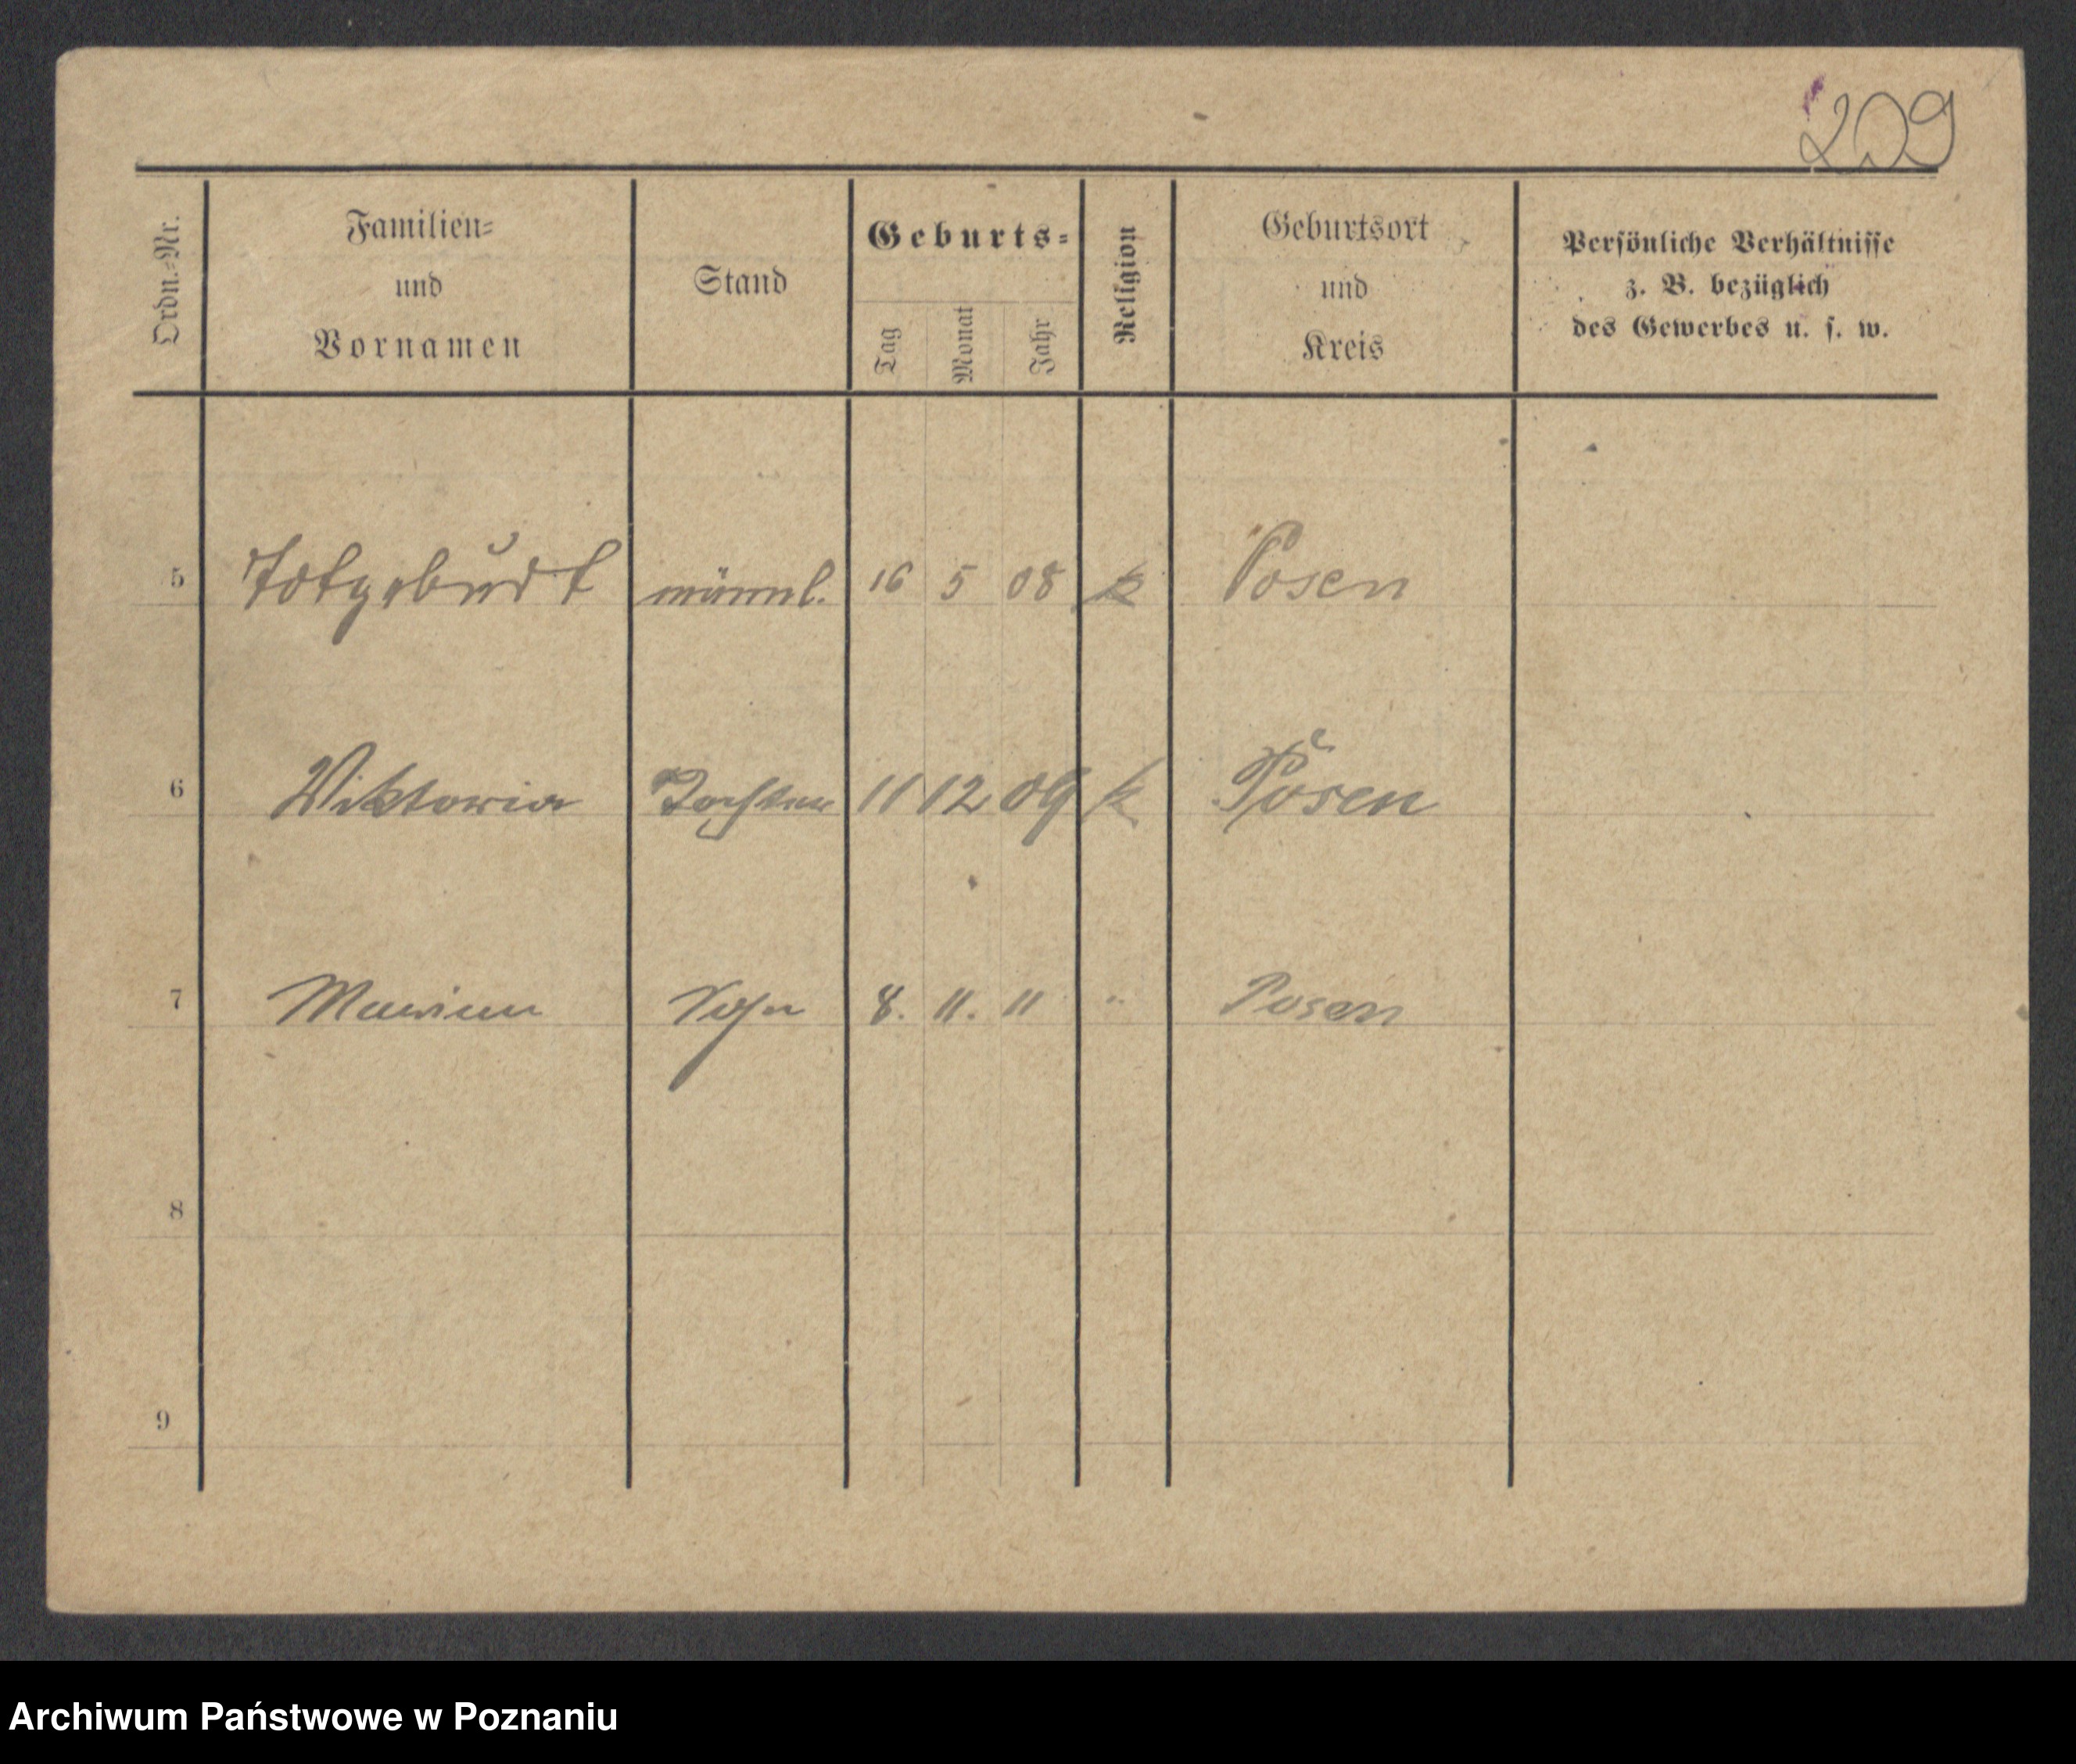 209
Ordn.-Nr. Familien- und Vornamen Stand Geburts- Tag Monat Jahr Religion Geburtsort und Kreis Persönliche Verhältnisse z. B. bezüglich des Gewerbes u. s. w.
5 Totgeburt männl. 16 5 08 k Posen
6 Viktoria Tochter 11 12 09 k Posen
7 Marian Sohn 8. 11. 11 " Posen
8
9
Archiwum Państwowe w Poznaniu